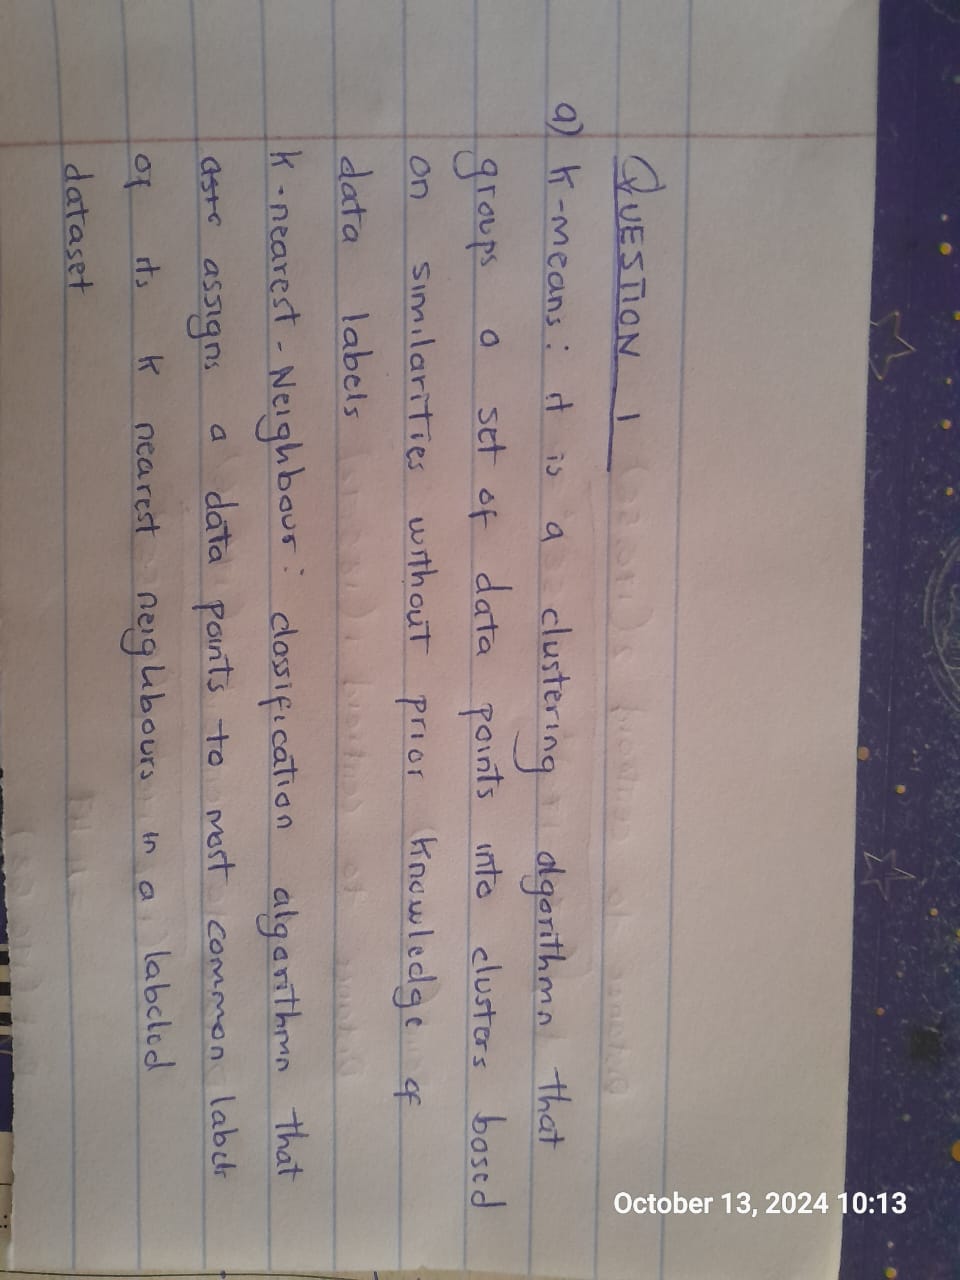 QUESTION 1
a) K-means: it is a clustering algorithmn that
groups a set of data points into clusters based
on similarities without prior knowledge of
data labels
K-nearest-Neighbour: classification algorithmn that
assigns a data points to most common labels
of its K nearest neighbours in a labeled
dataset
October 13, 2024 10:13